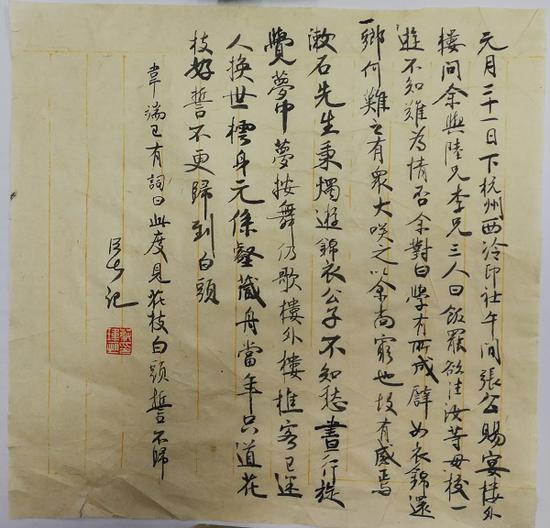 元月三十一日下杭州西泠印社午間張公賜宴樓外
樓問余與陸兄李兄三人曰飯罷欲往汝等母校一
遊不知難為情否余對曰學有所成譬如衣錦還
鄉何難之有衆大咲之以余尚窮也故有感焉
漱石先生秉燭遊錦衣公子不知愁書行旋
覺夢中夢按舞仍歌樓外樓樵客已迷
人換世檀身元係壑藏舟當年只道花
枝好誓不更歸到白頭
韋端己有詞曰此度見花枝白頭誓不歸
記